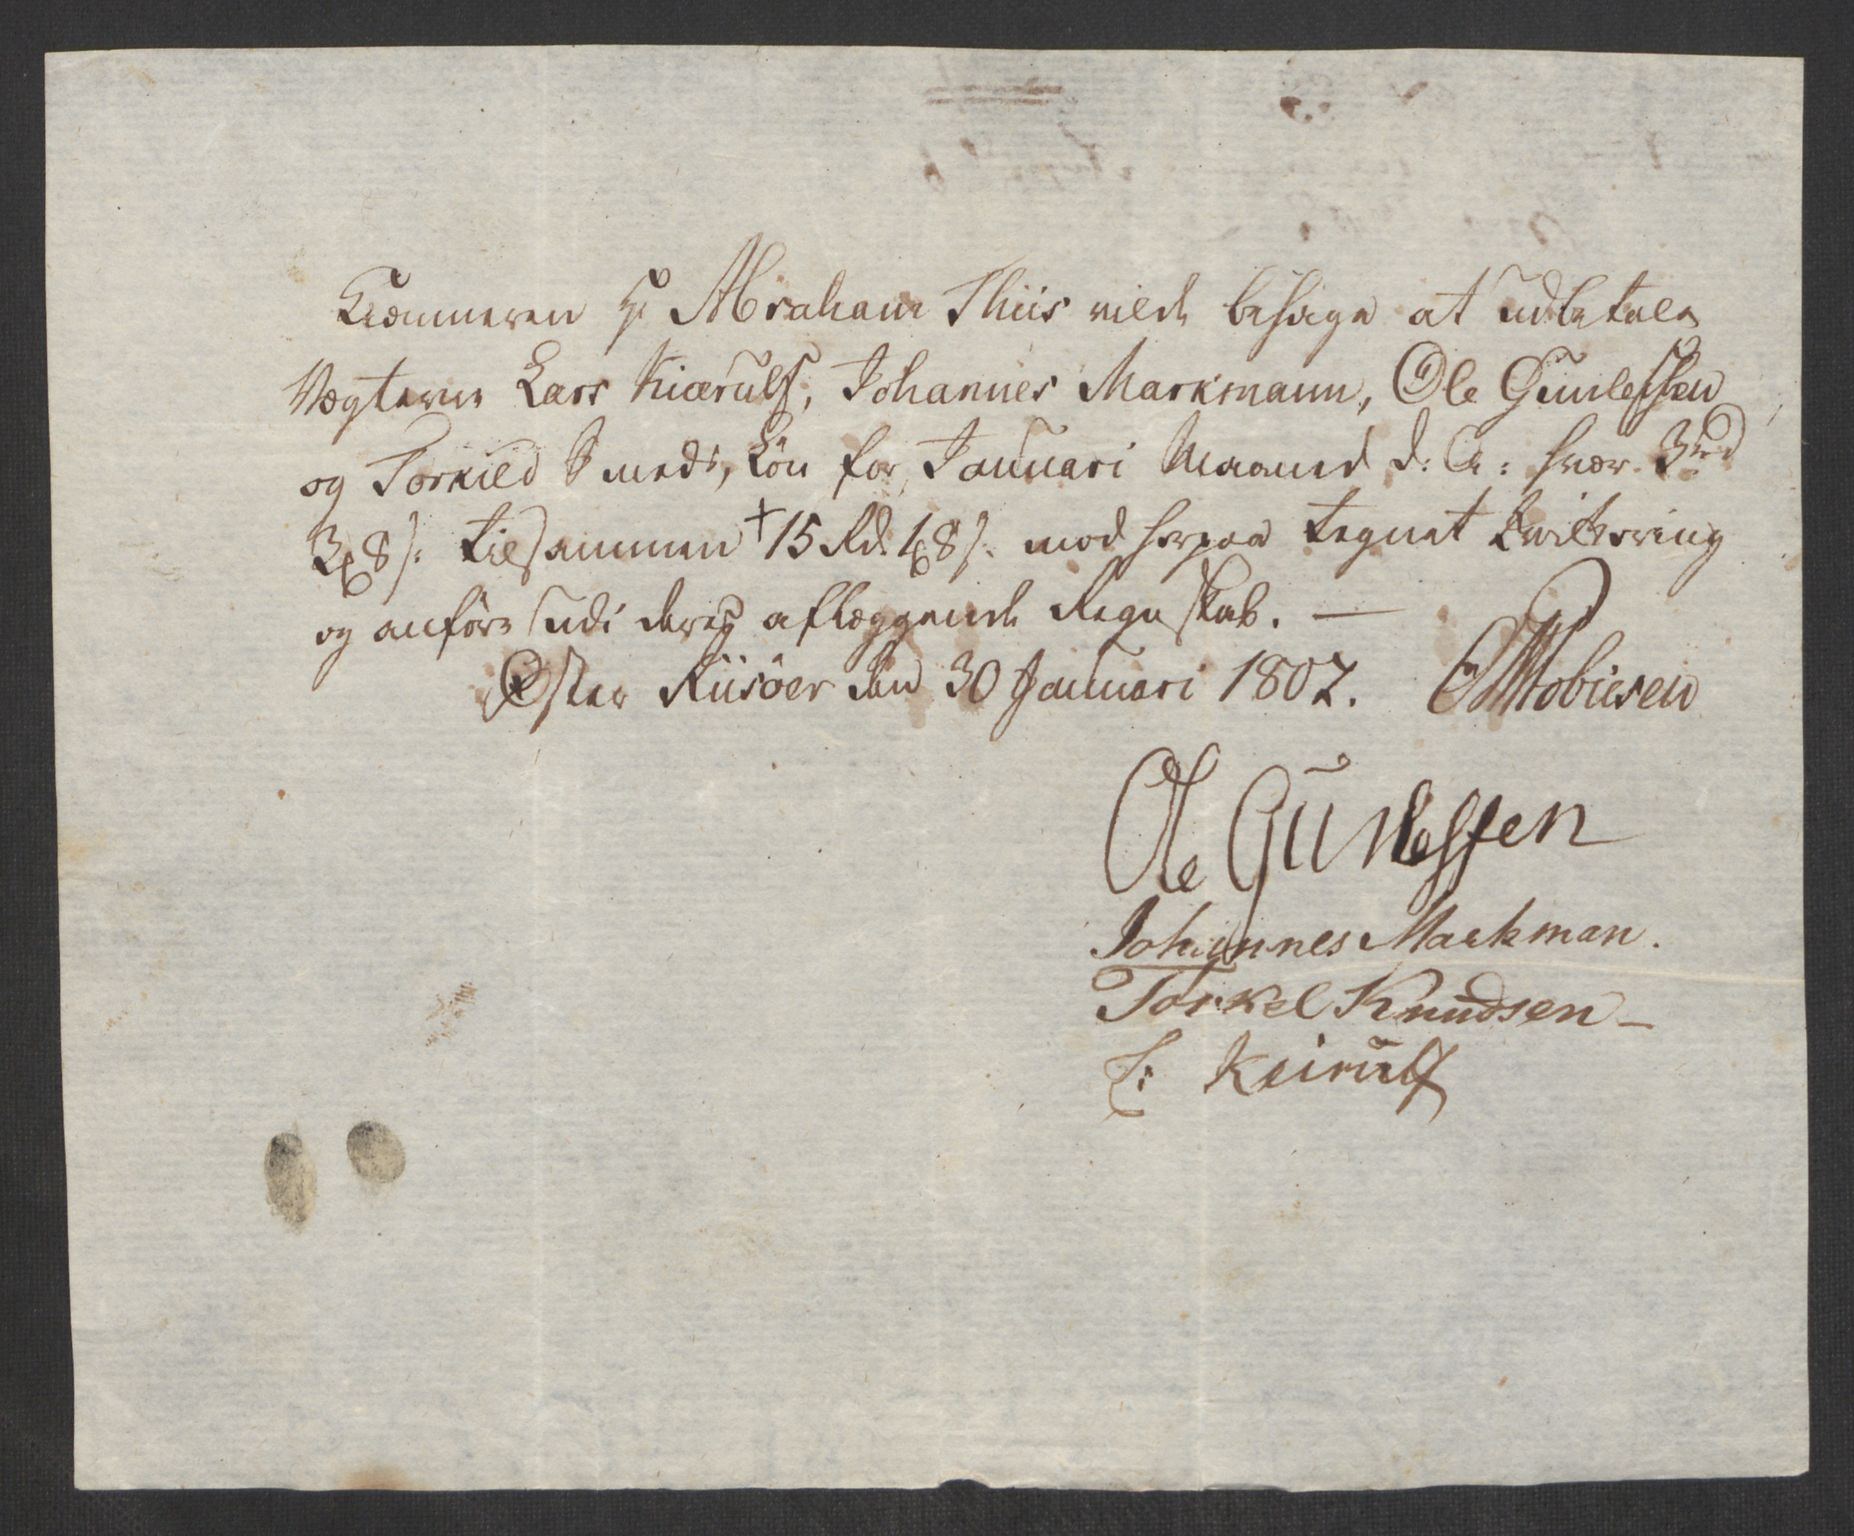 Kiæmneren Hr Abraham Thiis vilde behage at udbetale
Vægterne Lars Kiærulf, Johannes Markmann, Ole Gunlessen
og Torkild Smeds, Løn for Januari Maaned d: A: hver 3 rd
3 8 s: tilsammen + 15 Rd 1 8 s: mod herpaa tegnet Kvittering
og anføre udi deres aflæggende Regnskab. —
Øster Riisöer den 30 Januari 1802.
Ole Gunlessen
Johannes Markman.
Torkel Knudsen –
L: Keirulf